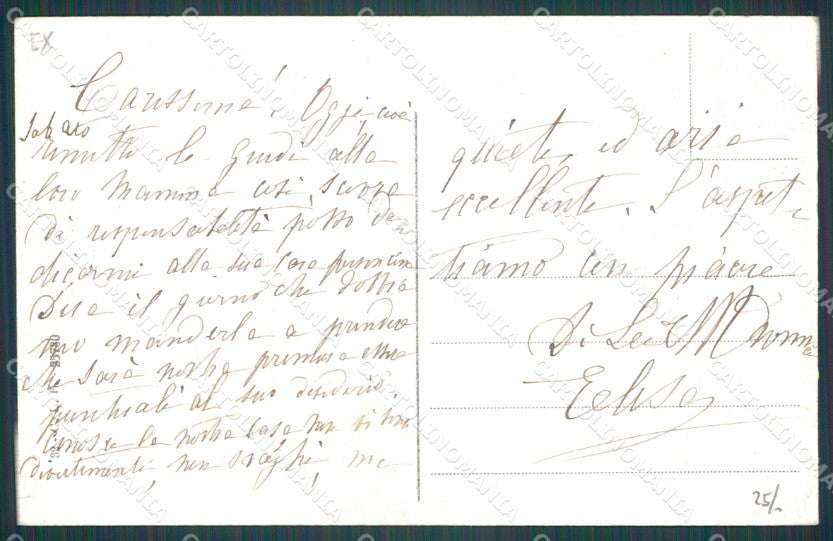 EX
Carissima! Oggi, cioè
Sabato
rimetto le guide alla
loro mamma così, senza
di responsabilità posso de
dicarmi alla sua cara
Dica il giorno che dobbia
mo manderla a prendere
che sarà nostra premura essere
puntuali al suo desiderio.
la nostra casa non vi sono
divertimenti non svaghi ma
quiete, ed aria
eccellente. L'aspet
tiamo con piacere
di Lei
Elisa
25/-
CARTOLINOMANIA